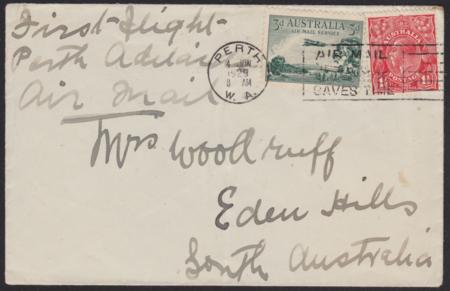 First-Flight-
Perth Adelai
Air Mail
3d AUSTRALIA
AIR MAIL SERVICE
PERTH
4 JUN
1929
8 AM
W. A.
AIR MAIL
SAVES TIME
AUSTRALIA
Mrs Woodruff
Eden Hills
South Australia